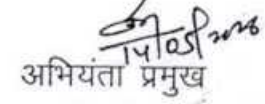 14/05/2026
अभियंता प्रमुख